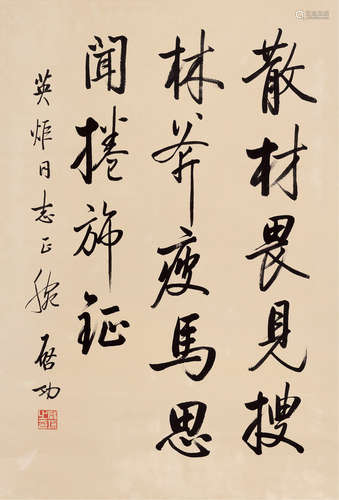 散材畏見搜
林斧瘦馬思
聞捲旆鉦
英炬同志正腕 啟功